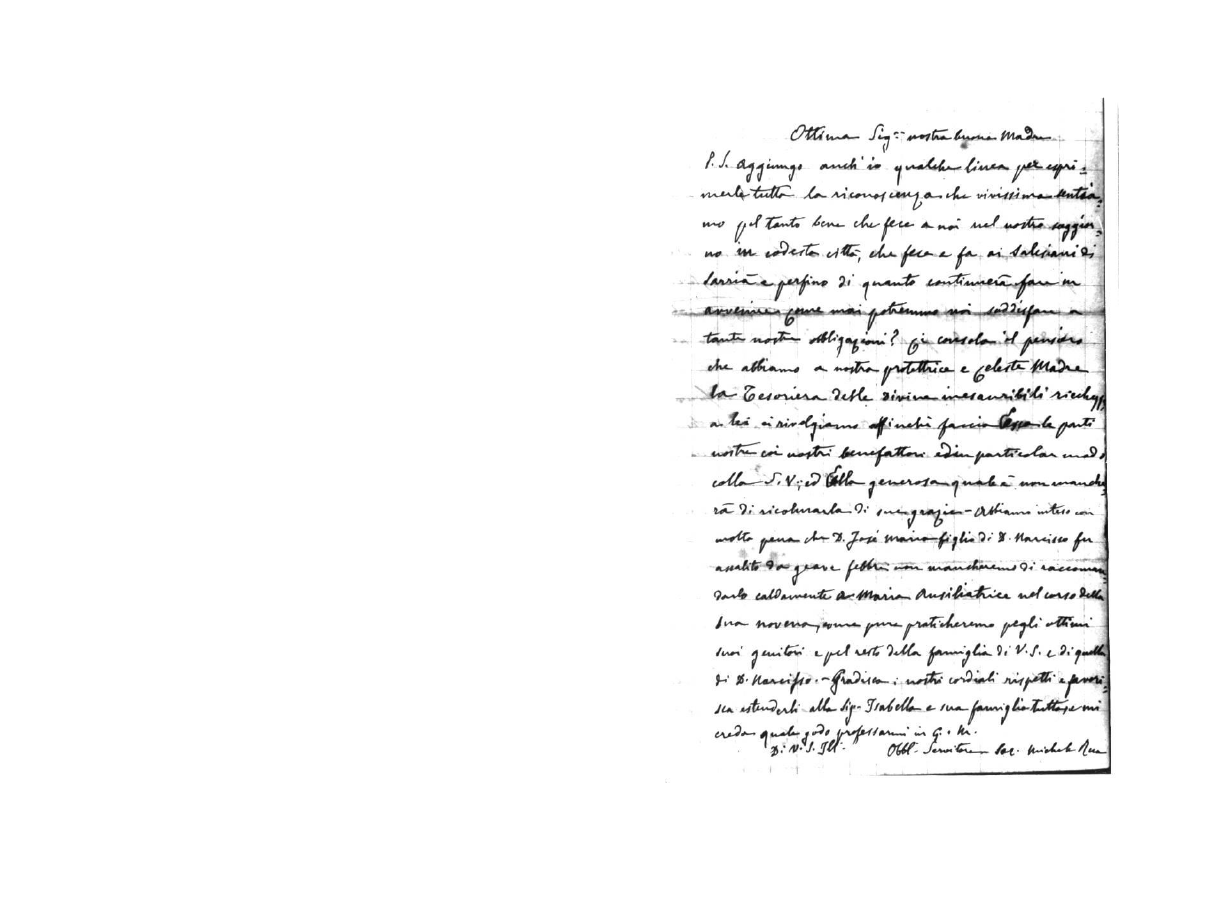 Ottima Sig.ra nostra buona Madre
P. S. Aggiungo anch'io qualche linea per espri-
merle tutta la riconoscenza che vivissima sentia-
mo pel tanto bene che fece a noi nel nostro soggior-
no in codesta città, che fece e fa ai Salesiani di
Sarrià e perfino di quanto continuerà fare in
avvenire come mai potremmo noi soddisfare a
tante nostre obbligazioni? Ci consola il pensiero
che abbiamo a nostra protettrice e Celeste Madre
la Tesoriera delle divine inesauribili ricchezze
a Lei ci rivolgiamo affinchè faccia Essa le parti
nostre coi nostri benefattori ed in particolar modo
colla S. V.; ed Ella generosa qual è non manche-
rà di ricolmarla di sue grazie - Abbiamo inteso con
molta pena che D. José Maria figlio di D. Narciso fu
assalito da grave febbre non mancheremo di raccoman-
darlo caldamente a Maria Ausiliatrice nel corso della
sua novena, come pure praticheremo pegli ottimi
suoi genitori e pel resto della famiglia di V. S. e di quella
di D. Narcisso. - Gradisca i nostri cordiali rispetti e favori-
sca estenderli alla Sig.ra Isabella e sua famiglia tutta, e mi
creda quale godo professarmi in G. e M.
Di V. S. Ill. Obbl. Servitore Sac. Michele Rua